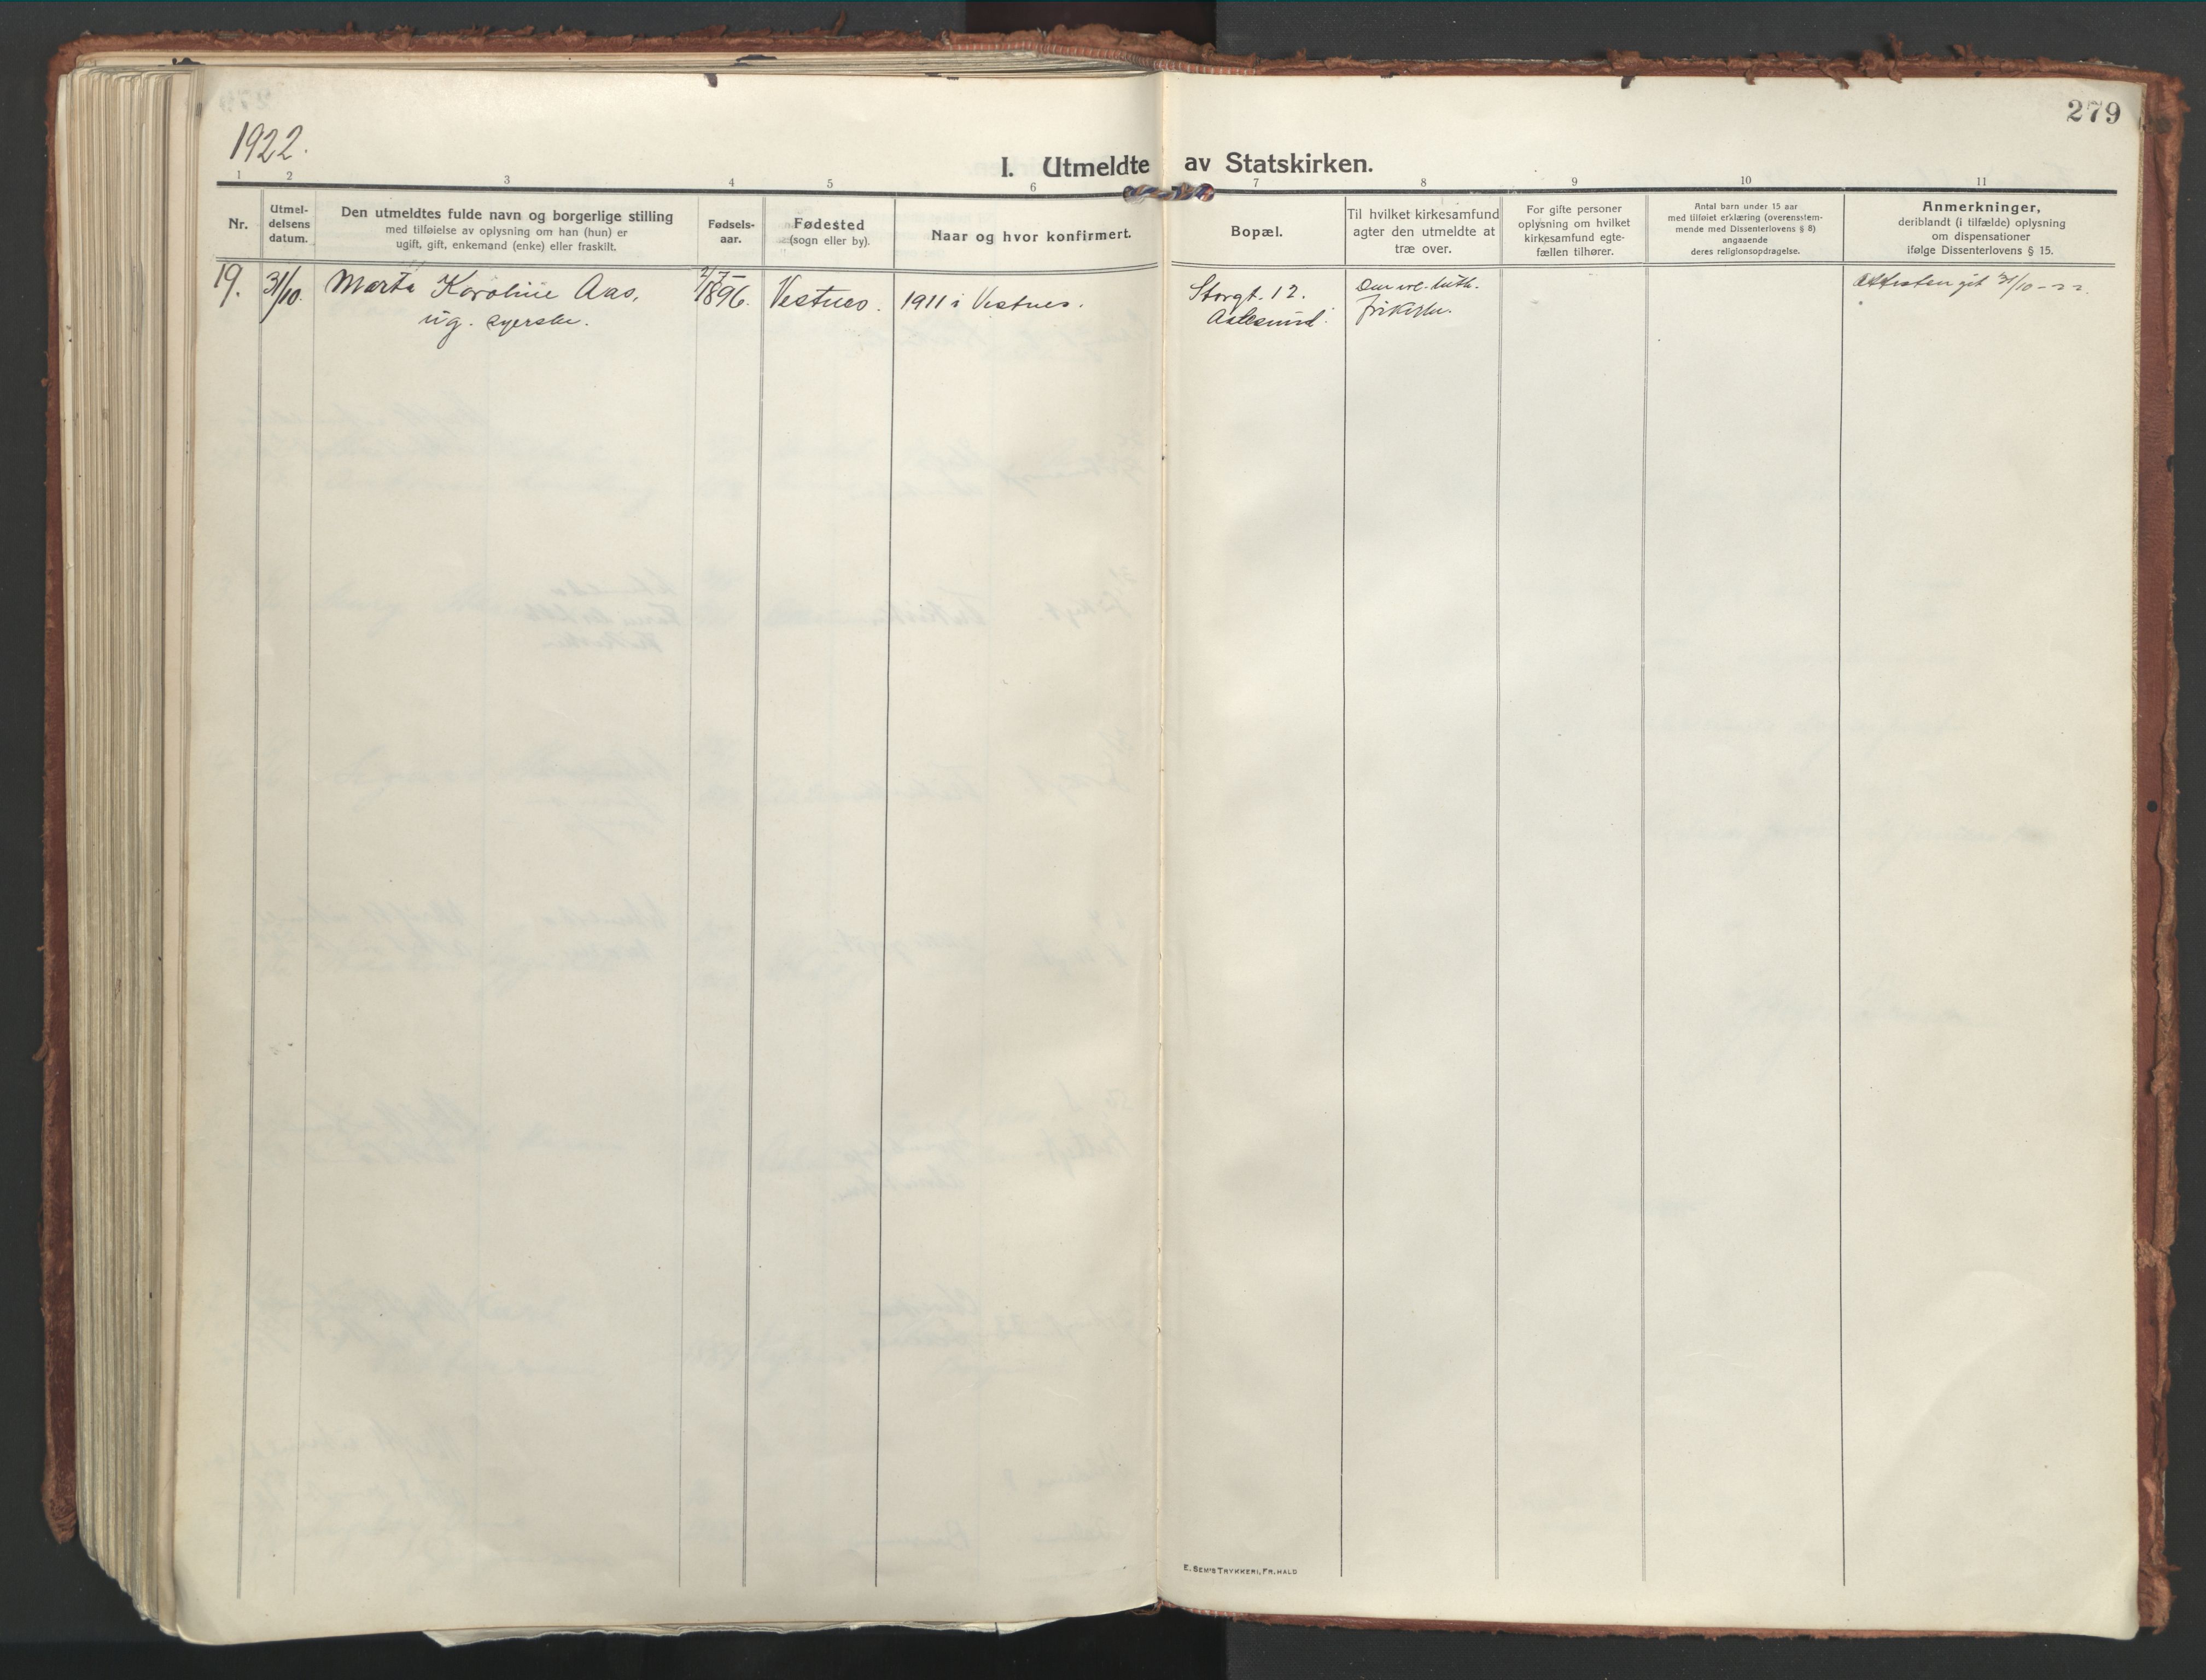 279
1922.
I. Utmeldte av Statskirken.
1 2 3 4 5 6 7 8 9 10 11
Nr.
Utmel-
delsens
datum.
Den utmeldtes fulde navn og borgerlige stilling
med tilføielse av oplysning om han (hun) er
ugift, gift, enkemand (enke) eller fraskilt.
Fødsels-
aar.
Fødested
(sogn eller by).
Naar og hvor konfirmert.
Bopæl.
Til hvilket kirkesamfund
agter den utmeldte at
træ over.
For gifte personer
oplysning om hvilket
kirkesamfund egte-
fællen tilhører.
Antal barn under 15 aar
med tilføiet erklæring (overensstem-
mende med Dissenterlovens § 8)
angaaende
deres religionsopdragelse.
Anmerkninger,
deriblandt (i tilfælde) oplysning
om dispensationer
ifølge Dissenterlovens § 15.
19.
31/10.
Marta Karoline Aas,
ug. syerske.
2/7-
1896.
Vestnes.
1911 i Vestnes.
Storgt. 12.
Aalesund.
Den ev.-luth.
frikirke.
Attesten git 31/10-22
E. SEM'S TRYKKERI, FR.HALD